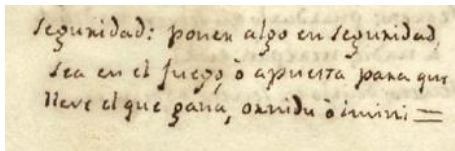 seguridad: poner algo en seguridad,
sea en el juego, ò apuesta para que
lleve el que gana, onnidu ò imini =